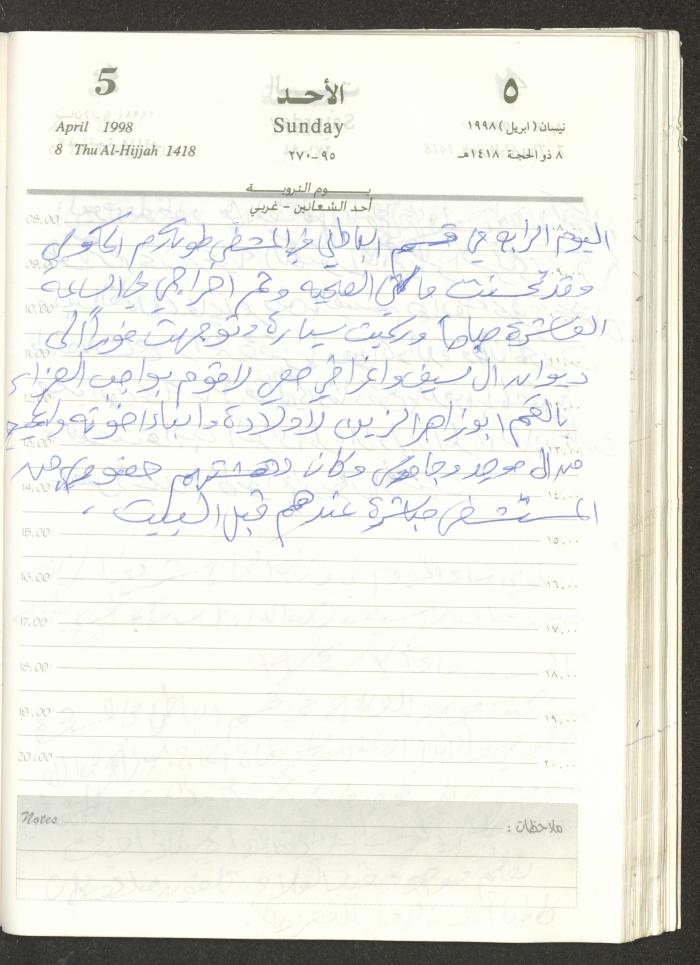 5
الأحد
٥
April 1998
Sunday
نيسان (ابريل) ١٩٩٨
8 Thu Al-Hijjah 1418
٩٥-٢٧٠
٨ ذو الحجة ١٤١٨هـ
يـــوم الترويـــة
أحد الشعانين - غربي
08.00
اليوم الرابع في قسم الباطني في
09.00
وقد تحسنت حالتي الصحية وتم اخراجي في الساعة
10.00
العاشرة صباحاً وركبت سيارة وتوجهت فوراً الى
11.00
ديوان ال سيف واغراضي معي لاقوم بواجب العزاء
12.00
ابو زاهر الزين لاولاده وابناء اخوته
13.00 ١٣,٠٠
من ال وكانا حضوري من
14.00 ١٤,٠٠
المستشفى مباشرة عندهم قبل البيت .
15.00 ١٥,٠٠
16.00 ١٦,٠٠
17.00 ١٧,٠٠
18.00 ١٨,٠٠
19.00 ١٩,٠٠
20.00 ٢٠,٠٠
Notes ملاحظات :